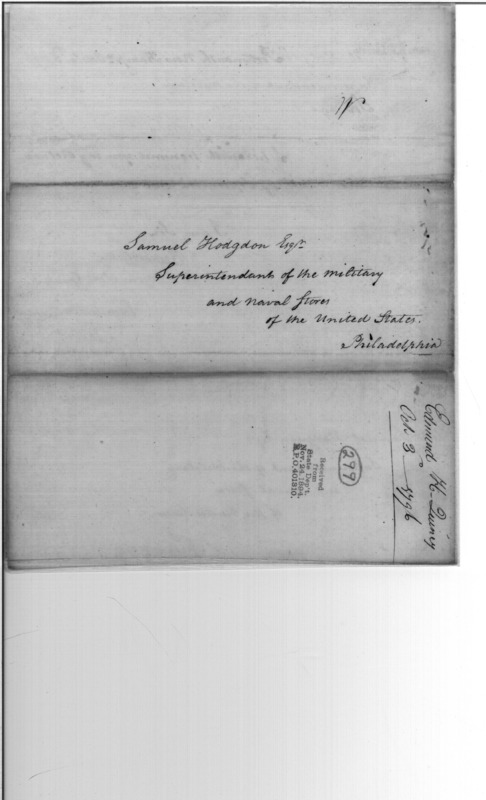 Samuel Hodgdon Esqr.
Superintendant of the military
and naval stores
of the United States.
Philadelphia
Edmund H. Quincy
Oct. 3 1796
299
Received
from
State Dep't.
Nov. 24, 1894.
R.P.O. 401810.